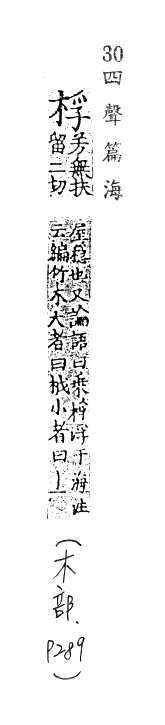 30 四聲篇海
桴
芳無扶
留二切
屋棟也又論語曰乘桴浮于海注
云編竹木大者曰栰小者曰丨
(木部.
P289)